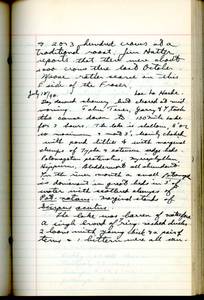 & 20 & 3 hundred crows at a
traditional roost. Jim Hatter
reports that there were about
500 crows there last October.
Moose rather scarce in this
side of the Fraser.
July 18/40. Lac la Hache.
Day dawned showery but cleared at mid
morning. John Tener, Gary &
the canoe down to 100 mile
for 2 hours. The lake is shallow, 8' or
so maximum &
with pond lilies & with marginal
clumps of Typha & extensive sedge beds.
Potamogeton pectinatus, Myriophyllum
Hippuris, Bladderwort all abundant.
In the river mouth a small
is dominant in great beds in 3' of
water with scattered clumps of
Pot. natans. Marginal stands of
Scirpus acutus.
The lake was barren of waterfowl
a single brood of Ring-necked ducks
2 loons with young but & a pair of
terns & 1 bittern were all seen.